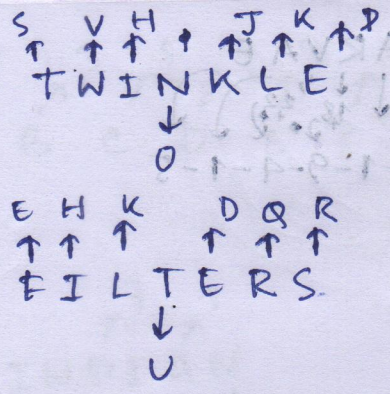 S V H J K D
T W I N K L E
O
E H K D Q R
F I L T E R S
U